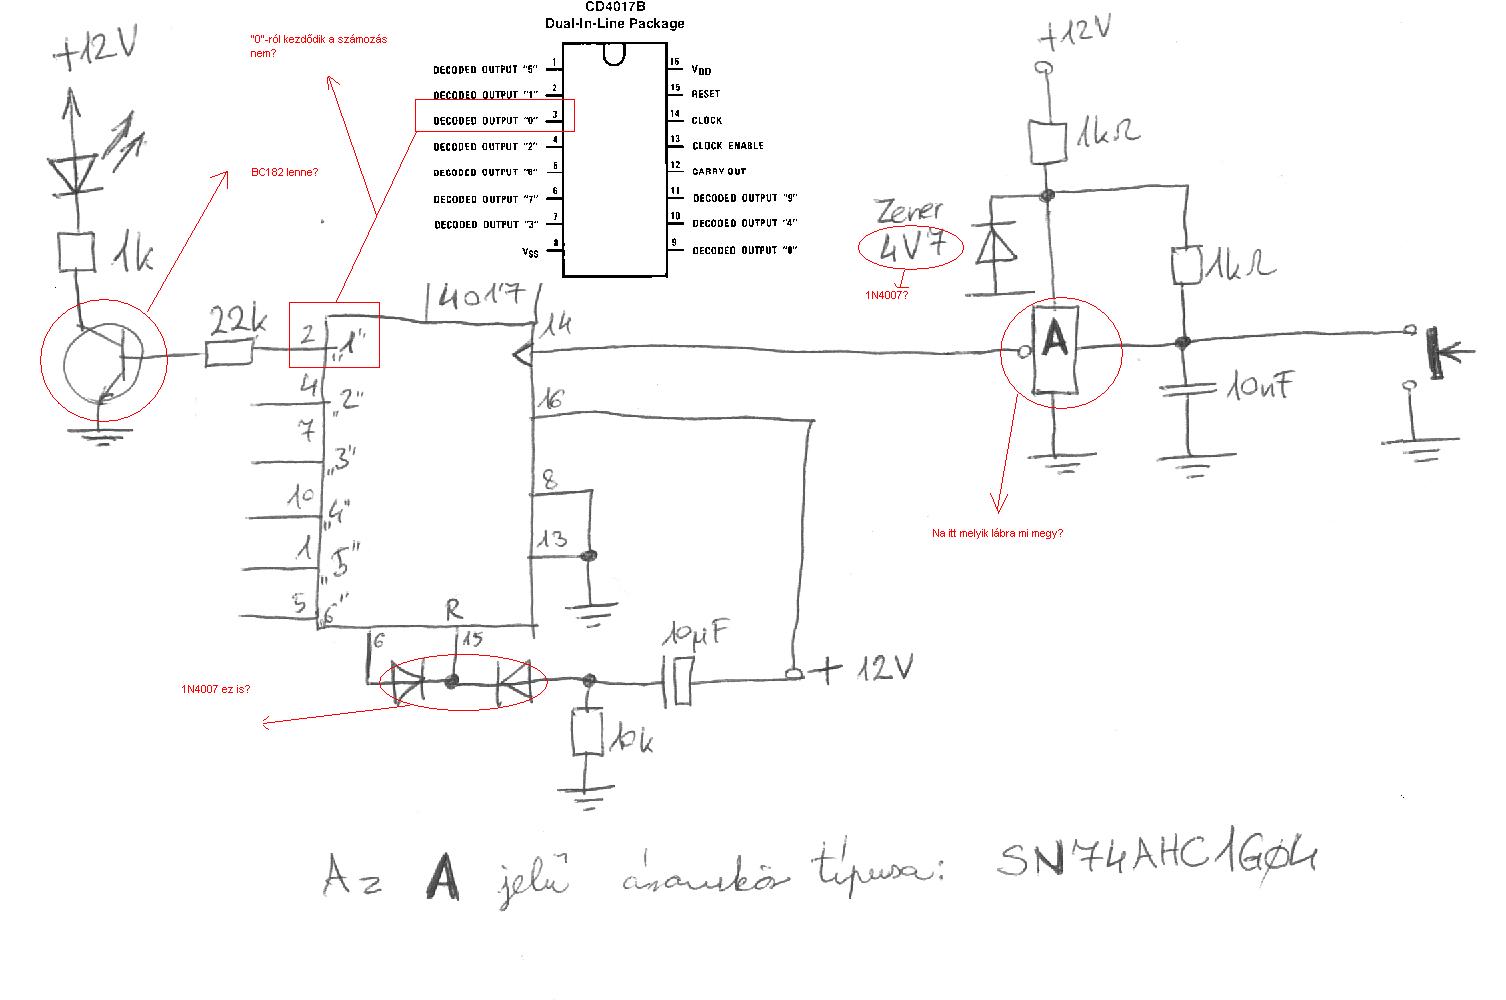 CD4017B
Dual-In-Line Package
+12V
"0"-ról kezdődik a számozás
nem?
DECODED OUTPUT "5" 1
DECODED OUTPUT "1" 2
DECODED OUTPUT "0" 3
DECODED OUTPUT "2" 4
DECODED OUTPUT "6" 5
DECODED OUTPUT "7" 6
DECODED OUTPUT "3" 7
VSS 8
16 VDD
15 RESET
14 CLOCK
13 CLOCK ENABLE
12 CARRY OUT
11 DECODED OUTPUT "9"
10 DECODED OUTPUT "4"
9 DECODED OUTPUT "8"
BC182 lenne?
1k
22k
4017
2 „1"
4 „2"
7 „3"
10 „4"
1 „5"
5 „6"
14
16
8
13
R
6
15
1N4007 ez is?
10µF
+ 12V
10k
+12V
1kΩ
Zener
4V7
1N4007?
1kΩ
A
10nF
Na itt melyik lábra mi megy?
Az A jelű áramkör típusa: SN74AHC1G04